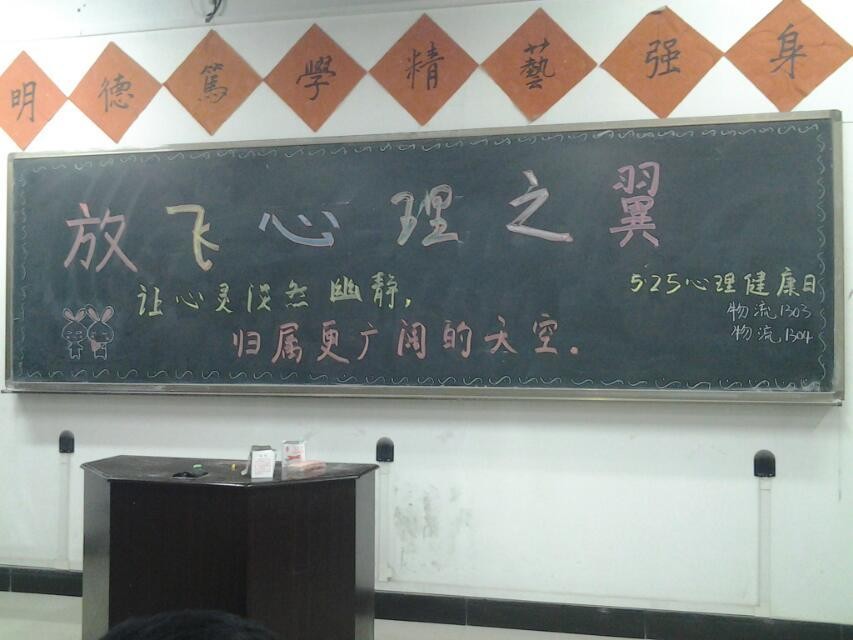 明德篤學精藝强身
放飞心理之翼
让心灵淡然幽静,
归属更广阔的天空.
5·25心理健康日
物流1303
物流1304